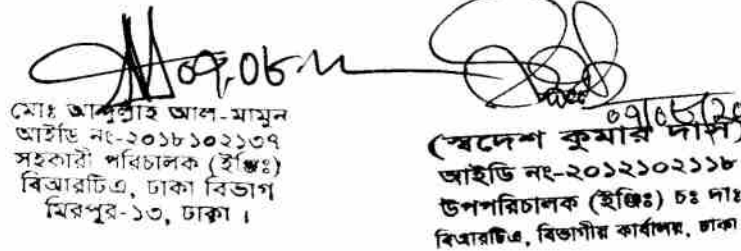 ০৭,০৮
মোঃ আব্দুল্লাহ আল-মামুন
আইডি নং-২০১৮১০২১৩৭
সহকারী পরিচালক (ইঞ্জিঃ)
বিআরটিএ, ঢাকা বিভাগ
মিরপুর-১৩, ঢাকা ।
(স্বদেশ কুমার দাস)
আইডি নং-২০১২১০২১১৮
উপপরিচালক (ইঞ্জিঃ) চঃ দাঃ
বিআরটিএ, বিভাগীয় কার্যালয়, ঢাকা